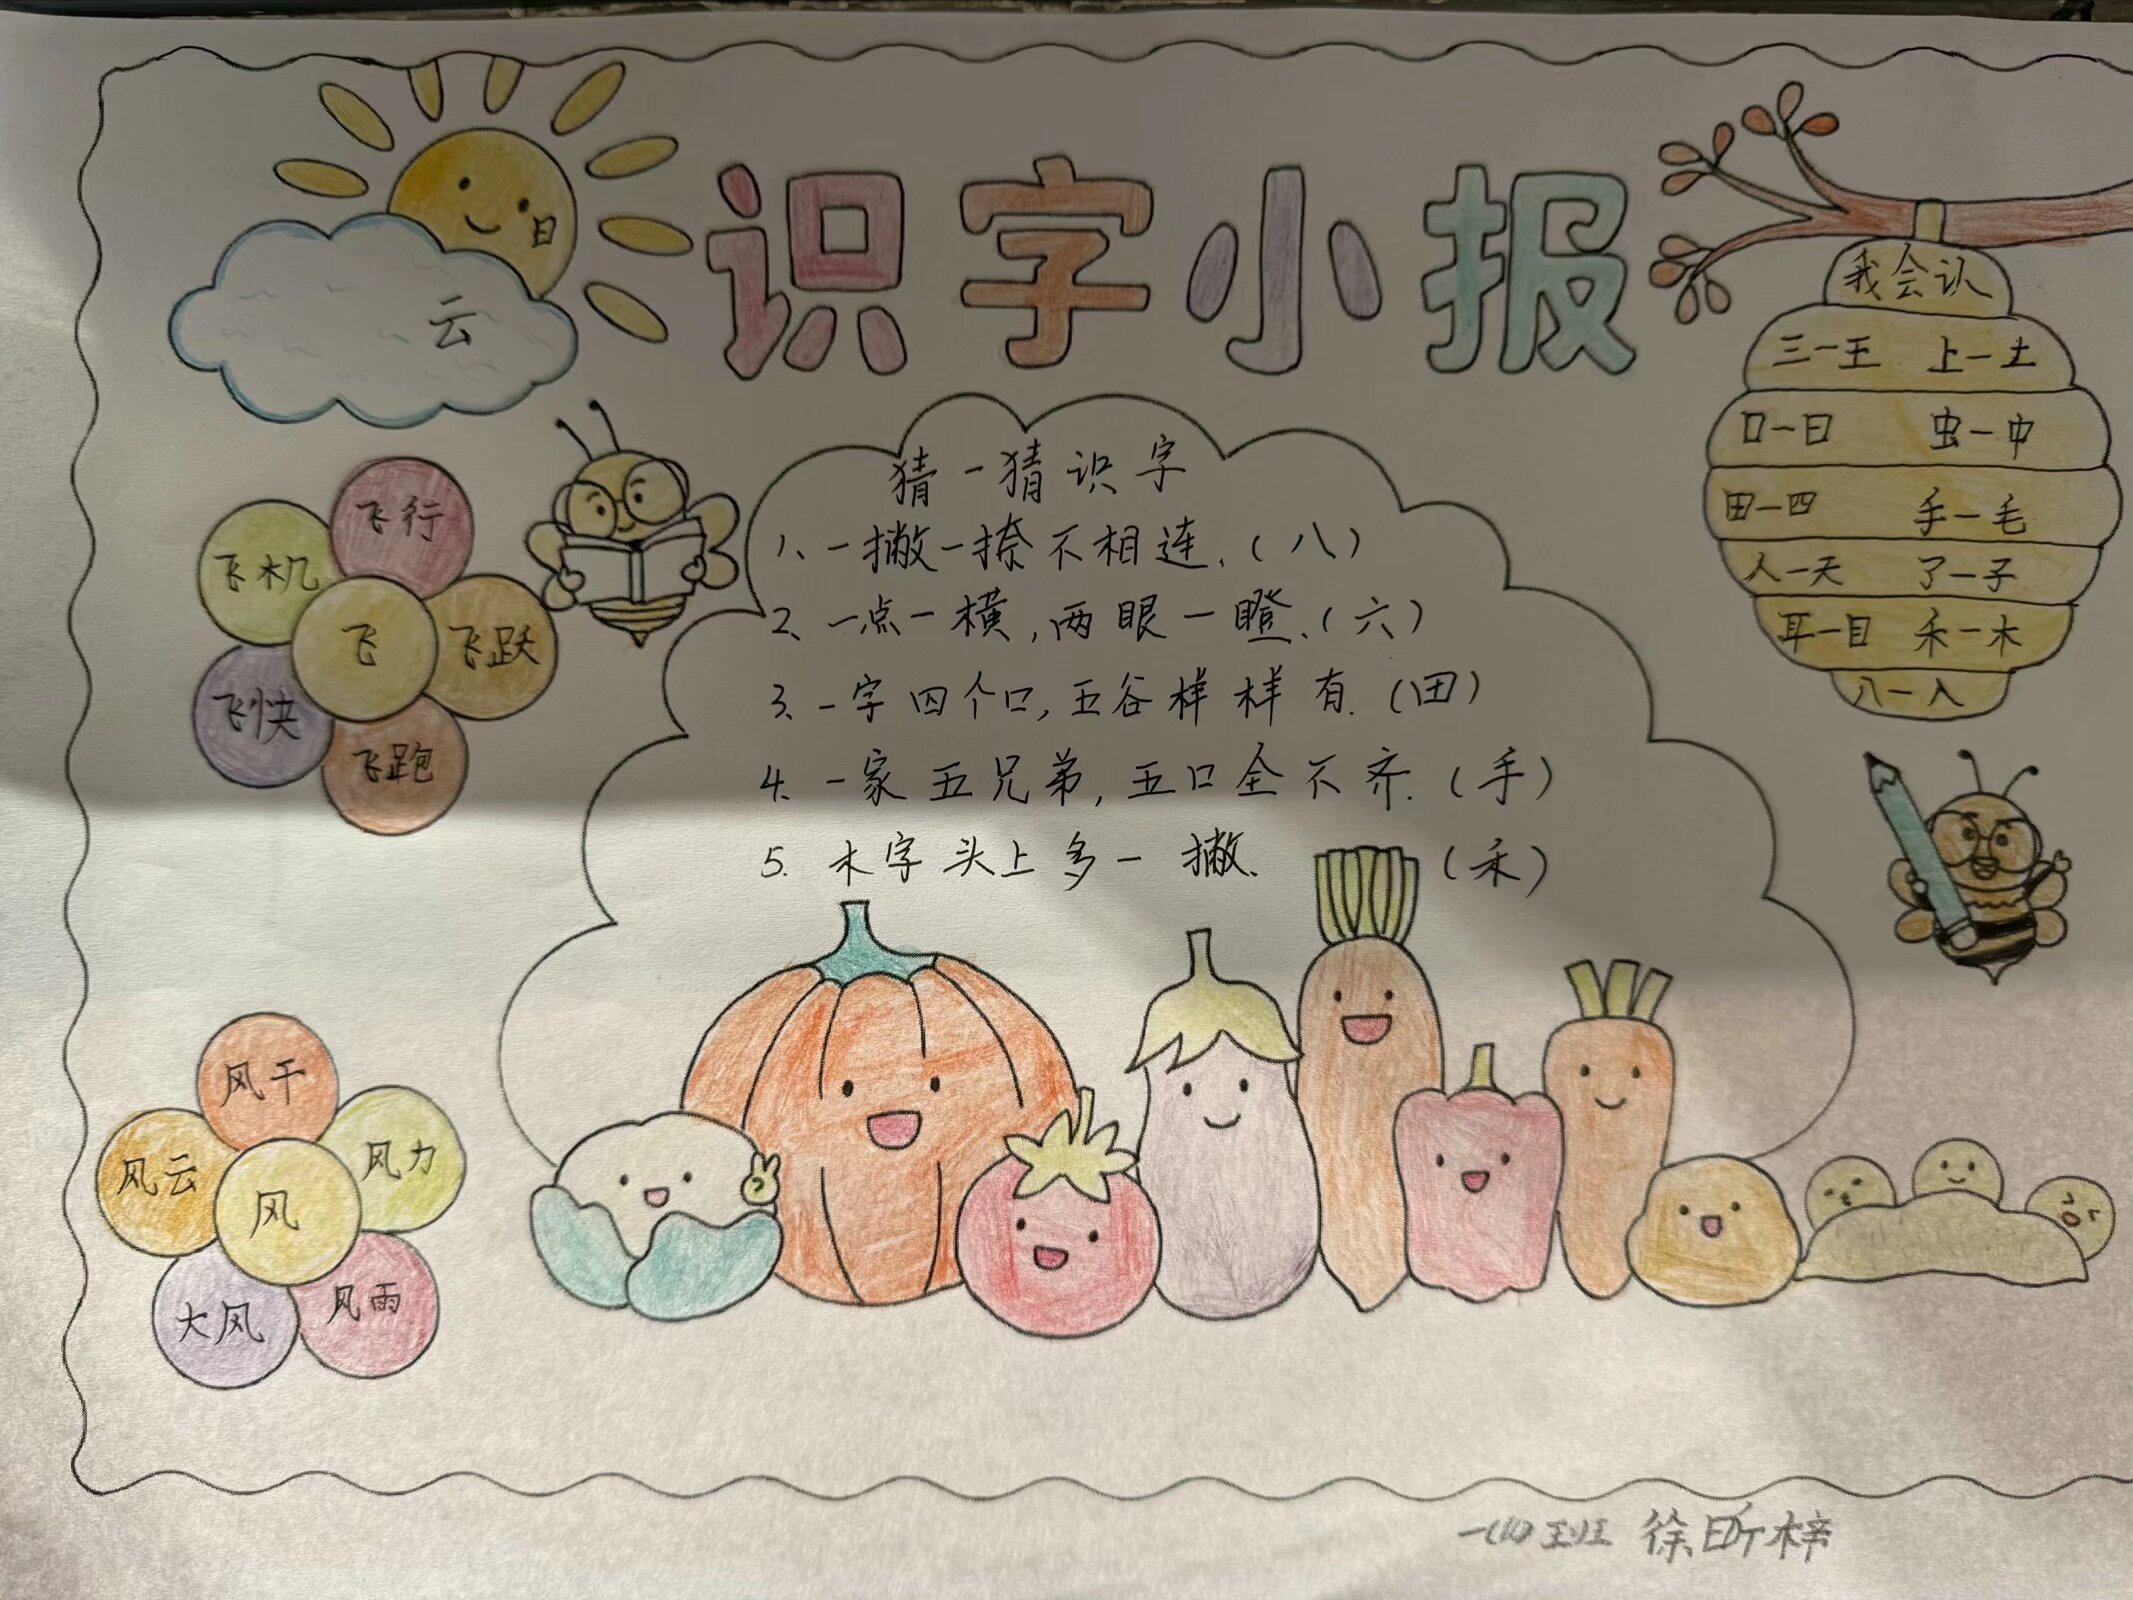 识字小报
日
云
我会认
三一王 上一土
口一日 虫一中
田一四 手一毛
人一天 了一子
耳一目 禾一木
八一入
飞行
飞机
飞
飞跃
飞快
飞跑
猜一猜识字
1、一撇一捺不相连.(八)
2、一点一横,两眼一瞪.(六)
3、一字四个口,五谷样样有.(田)
4、一家五兄弟,五口全不齐.(手)
5、木字头上多一撇.(禾)
风干
风云
风力
风
大风
风雨
班 徐昕梓